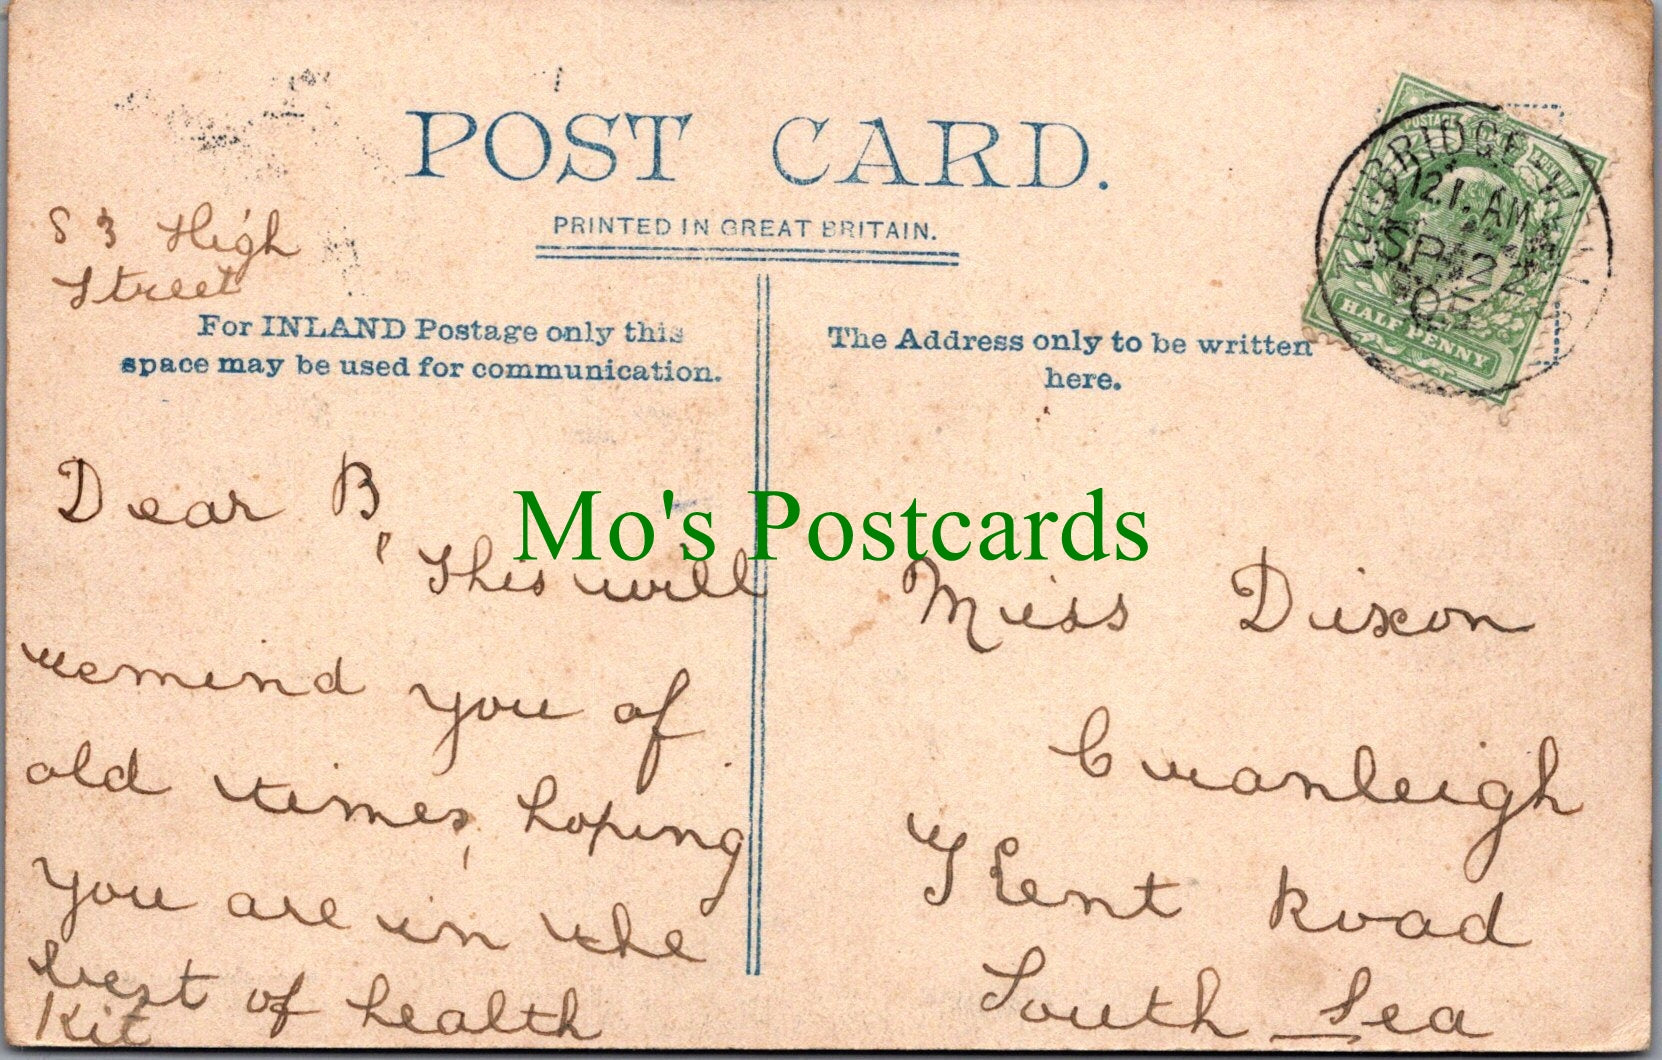 POST CARD.
PRINTED IN GREAT BRITAIN.
83 High
Street
For INLAND Postage only this
space may be used for communication.
The Address only to be written
here.
POSTAGE
HALF PENNY
BRIDGE
12 AM
SP 22
05
Dear B,
This will
remind you of
old times, hoping
you are in the
best of health
Kit
Mo's Postcards
Miss Dixon
Cranleigh
Kent Road
South Sea